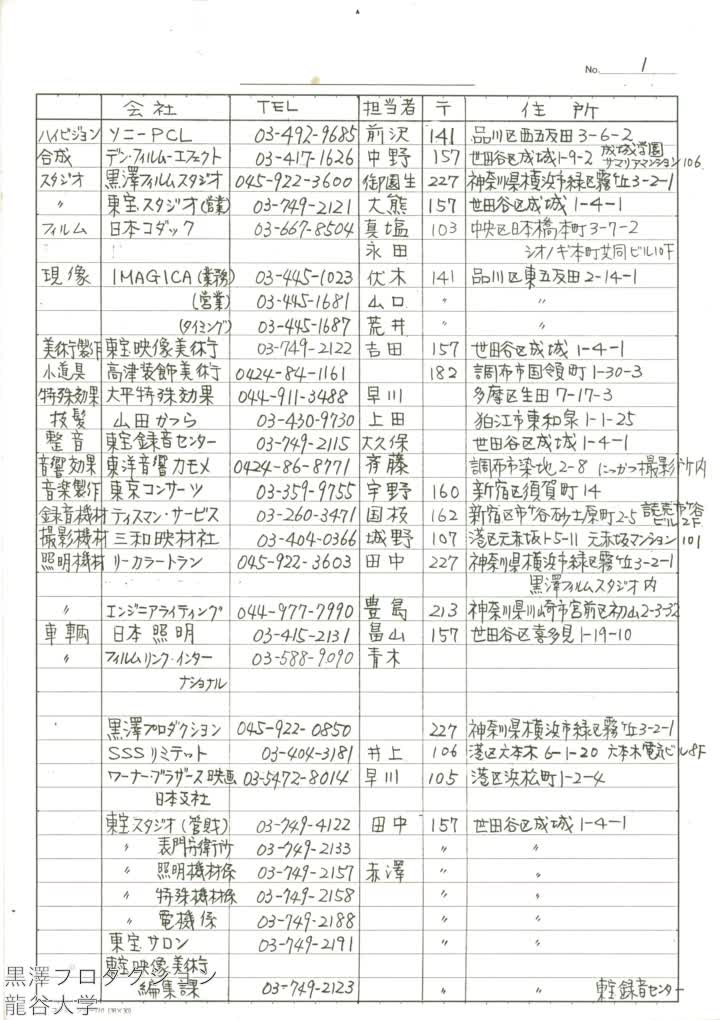 No. 1
会社 TEL 担当者 〒 住所
ハイビジョン ソニーPCL 03-492-9685 前沢 141 品川区西五反田3-6-2
合成 デン・フィルム・エフェクト 03-417-1626 中野 157 世田谷区成城1-9-2 成城学園サマリアマンション106
スタジオ 黒澤フィルムスタジオ 045-922-3600 御園生 227 神奈川県横浜市緑区霧ヶ丘3-2-1
〃 東宝スタジオ(営業) 03-749-2121 大熊 157 世田谷区成城1-4-1
フィルム 日本コダック 03-667-8504 真塩 103 中央区日本橋本町3-7-2
永田 シオノギ本町共同ビル10F
現像 IMAGICA(業務) 03-445-1023 伏木 141 品川区東五反田2-14-1
(営業) 03-445-1681 山口 〃 〃
(タイミング) 03-445-1687 荒井 〃 〃
美術製作 東宝映像美術 03-749-2122 吉田 157 世田谷区成城1-4-1
小道具 高津装飾美術 0424-84-1161 182 調布市国領町1-30-3
特殊効果 大平特殊効果 044-911-3488 早川 多摩区生田7-17-3
技髪 山田かつら 03-430-9730 上田 狛江市東和泉1-1-25
整音 東宝録音センター 03-749-2115 大久保 世田谷区成城1-4-1
音響効果 東洋音響カモメ 0424-86-8771 斉藤 調布市染地2-8 にっかつ撮影所内
音楽製作 東京コンサーツ 03-359-9755 宇野 160 新宿区須賀町14
録音機材 ティスマン・サービス 03-260-3471 国枝 162 新宿区市ヶ谷砂土原町2-5
撮影機材 三和映材社 03-404-0366 城野 107 港区元赤坂1-5-11 元赤坂マンション101
照明機材 リーカラートラン 045-922-3603 田中 227 神奈川県横浜市緑区霧ヶ丘3-2-1
黒澤フィルムスタジオ内
〃 エンジニアライティング 044-977-7990 豊島 213 神奈川県川崎市宮前区初山2-3-32
車輌 日本照明 03-415-2131 畠山 157 世田谷区喜多見1-19-10
〃 フィルムリンク・インター 03-588-9090 青木
ナショナル
黒澤プロダクション 045-922-0850 227 神奈川県横浜市緑区霧ヶ丘3-2-1
SSSリミテット 03-404-3181 井上 106 港区六本木6-1-20 六本木電気ビル8F
ワーナー・ブラザース映画 03-5472-8014 早川 105 港区浜松町1-2-4
日本支社
東宝スタジオ(管財) 03-749-4122 田中 157 世田谷区成城1-4-1
〃 表門守衛所 03-749-2133 〃 〃
〃 照明機材係 03-749-2157 赤澤 〃 〃
〃 特殊機材係 03-749-2158 〃 〃
〃 電機係 03-749-2188 〃 〃
東宝サロン 03-749-2191 〃 〃
東宝映像美術
編集課 03-749-2123 〃 〃 東宝録音センター
黒澤プロダクション
龍谷大学